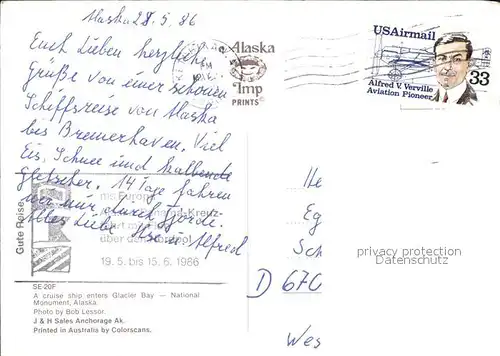 Alaska 28.5.86
Euch Lieben herzliche
Grüße von einer schönen
Schiffsreise von Alaska
bis Bremerhaven. Viel
Eis, Schnee und kalbende
Gletscher. 14 Tage fahren
wir nur durch Fjorde.
Alles Liebe Alfred
Alaska
Imp
PRINTS
USAirmail
33
Alfred V. Verville
Aviation Pioneer
Gute Reise
Europ
Kreuz-
über
19. 5. bis 15. 6. 1986
SE-20F
A cruise ship enters Glacier Bay — National
Monument, Alaska.
Photo by Bob Lessor.
J & H Sales Anchorage Ak.
Printed in Australia by Colorscans.
He
Eg
Sch
D 670
Wes
privacy protection
Datenschutz